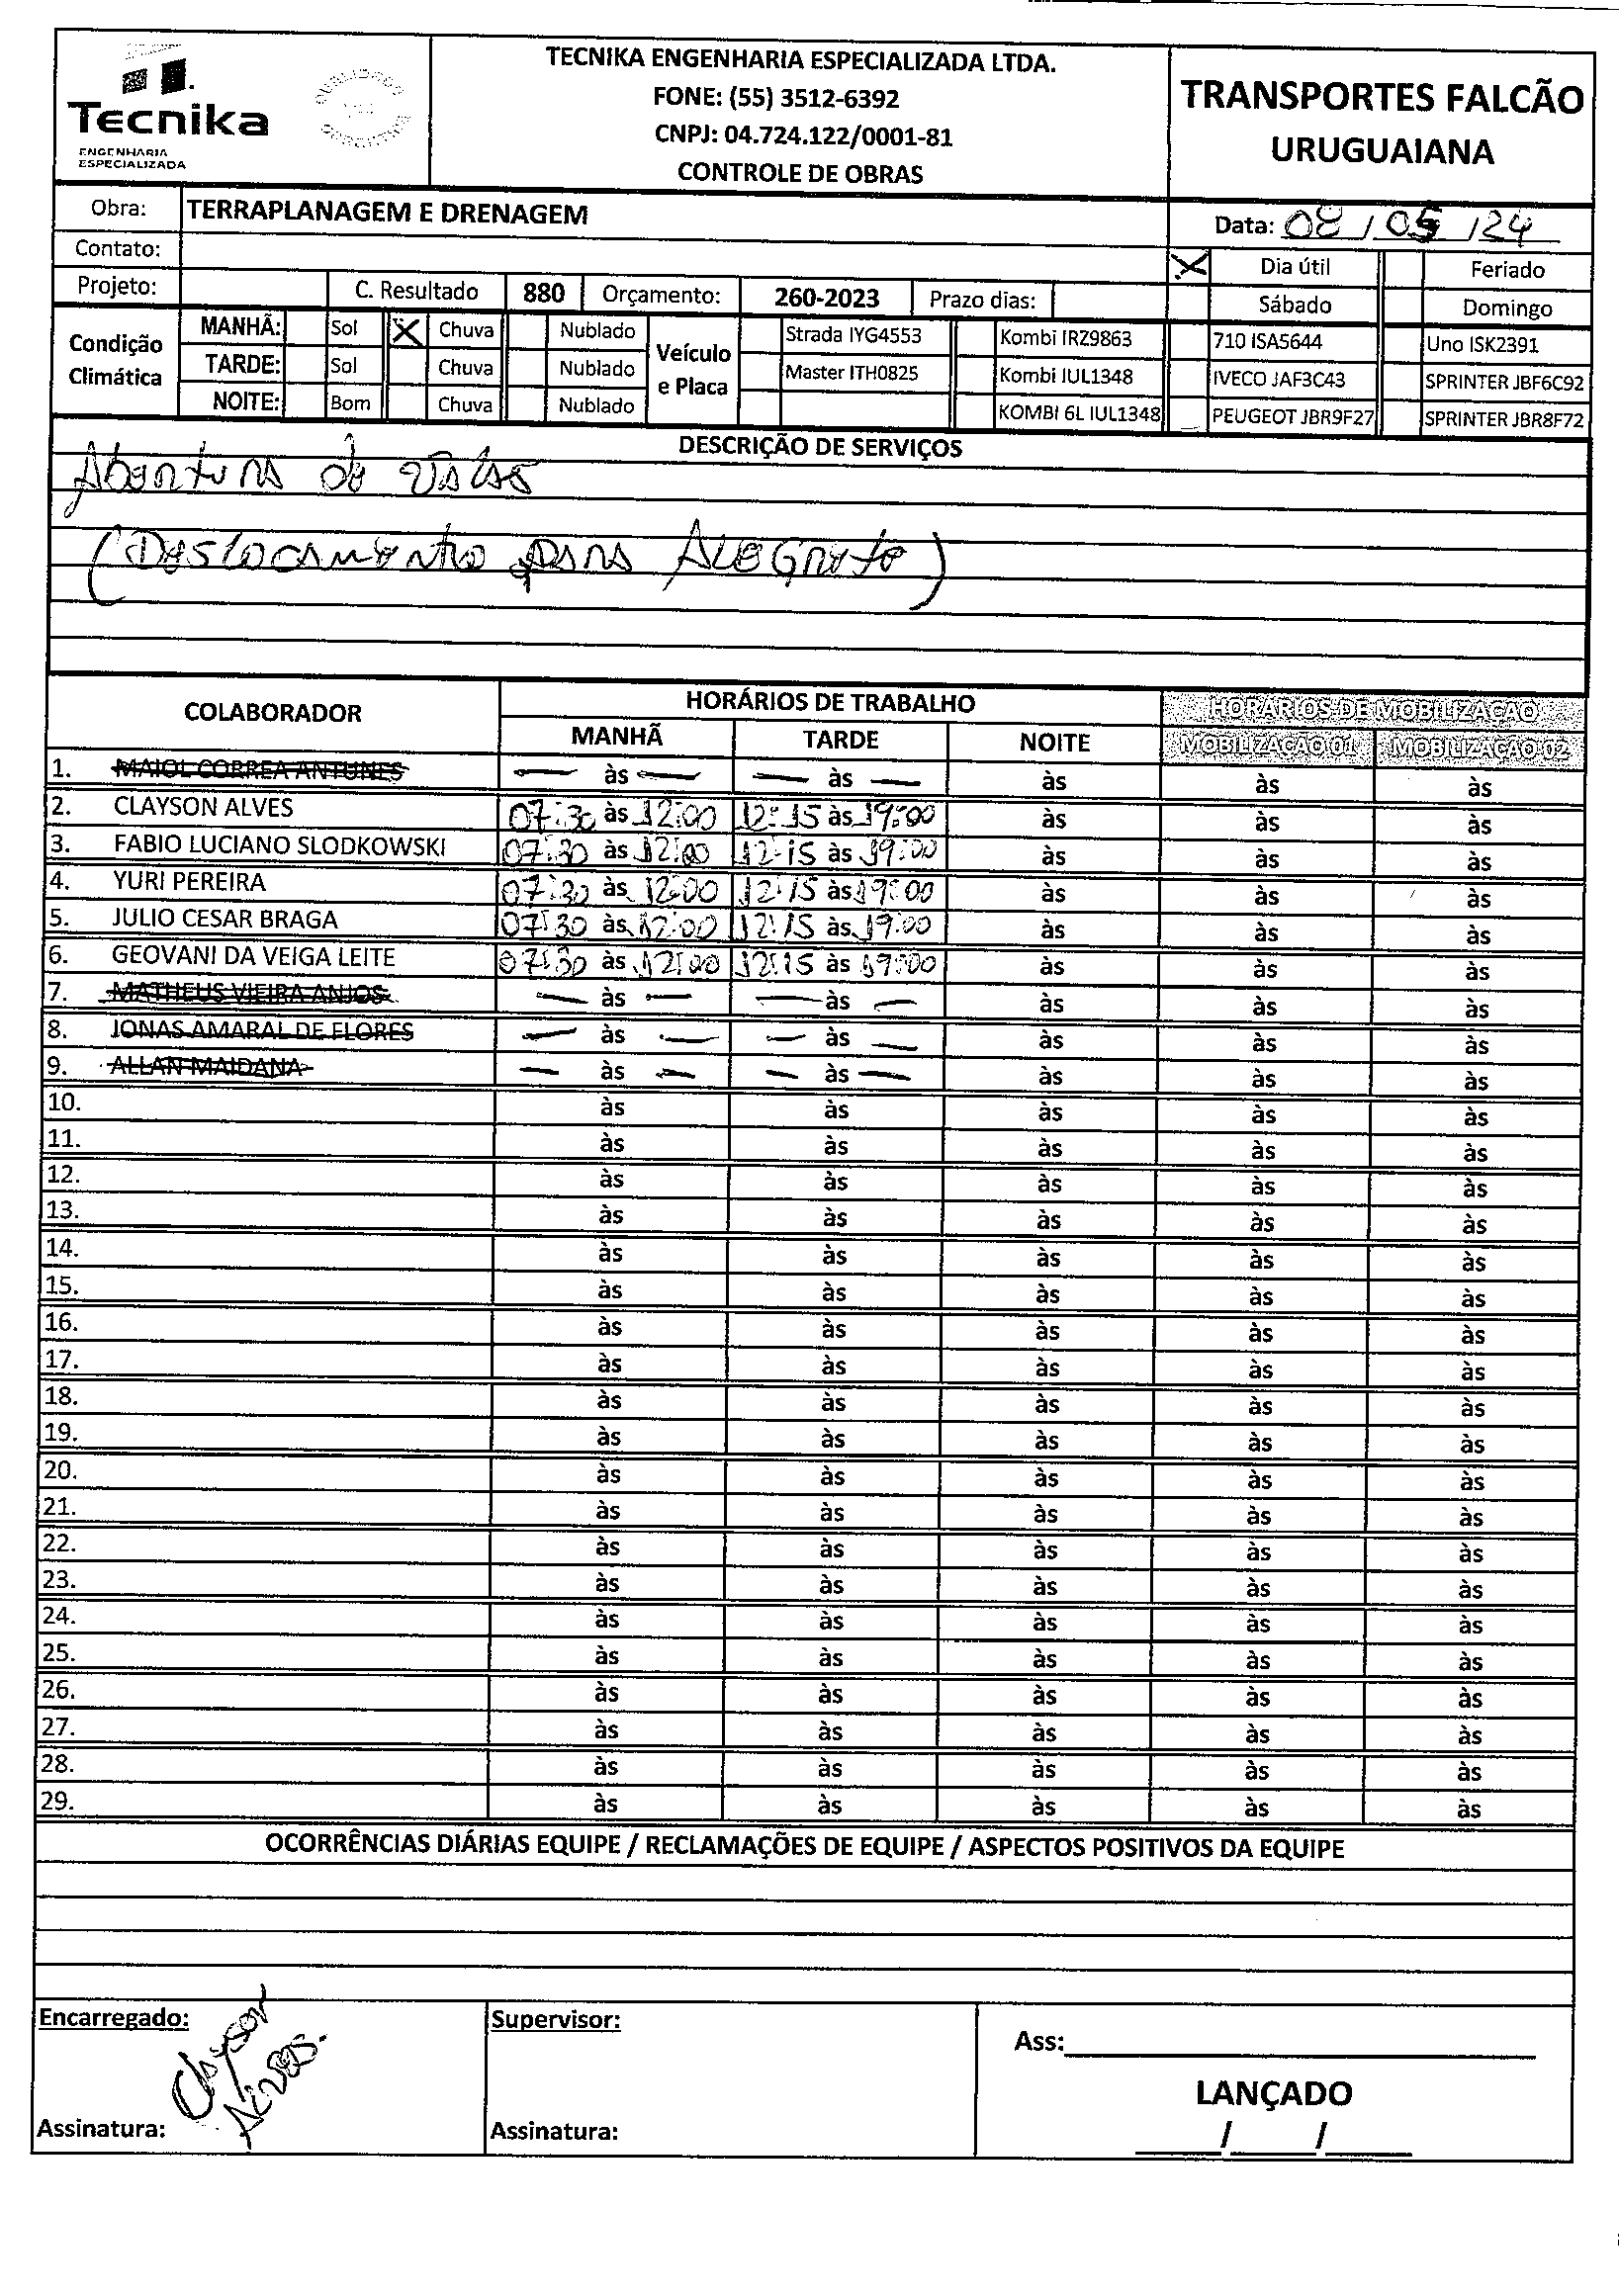 Tecnika
ENGENHARIA
ESPECIALIZADA
TECNIKA ENGENHARIA ESPECIALIZADA LTDA.
FONE: (55) 3512-6392
CNPJ: 04.724.122/0001-81
CONTROLE DE OBRAS
TRANSPORTES FALCÃO
URUGUAIANA
Obra: TERRAPLANAGEM E DRENAGEM
Data: 08/05/24
Contato:
X Dia útil Feriado
Projeto: C. Resultado 880 Orçamento: 260-2023 Prazo dias:
Sábado Domingo
Condição Climática
MANHÃ: Sol X Chuva Nublado
TARDE: Sol Chuva Nublado
NOITE: Bom Chuva Nublado
Veículo e Placa
Strada IYG4553 Kombi IRZ9863 710 ISA5644 Uno ISK2391
Master ITH0825 Kombi IUL1348 IVECO JAF3C43 SPRINTER JBF6C92
KOMBI 6L IUL1348 PEUGEOT JBR9F27 SPRINTER JBR8F72
DESCRIÇÃO DE SERVIÇOS
Abertura de Valas
(Deslocamento para Alegrete)
COLABORADOR HORÁRIOS DE TRABALHO HORÁRIOS DE MOBILIZAÇÃO
MANHÃ TARDE NOITE MOBILIZAÇÃO 01 MOBILIZAÇÃO 02
1. MAIOL CORREA ANTUNES — às — — às — às às às
2. CLAYSON ALVES 07:30 às 12:00 12:15 às 19:00 às às às
3. FABIO LUCIANO SLODKOWSKI 07:30 às 12:00 12:15 às 19:00 às às às
4. YURI PEREIRA 07:30 às 12:00 12:15 às 19:00 às às às
5. JULIO CESAR BRAGA 07:30 às 12:00 12:15 às 19:00 às às às
6. GEOVANI DA VEIGA LEITE 07:30 às 12:00 12:15 às 19:00 às às às
7. MATHEUS VIEIRA ANJOS — às — — às — às às às
8. JONAS AMARAL DE FLORES — às — — às — às às às
9. ALLAN MAIDANA — às — — às — às às às
10. às às às às às
11. às às às às às
12. às às às às às
13. às às às às às
14. às às às às às
15. às às às às às
16. às às às às às
17. às às às às às
18. às às às às às
19. às às às às às
20. às às às às às
21. às às às às às
22. às às às às às
23. às às às às às
24. às às às às às
25. às às às às às
26. às às às às às
27. às às às às às
28. às às às às às
29. às às às às às
OCORRÊNCIAS DIÁRIAS EQUIPE / RECLAMAÇÕES DE EQUIPE / ASPECTOS POSITIVOS DA EQUIPE
Encarregado: Supervisor:
Clayson Alves.
Ass:
LANÇADO
Assinatura: Assinatura:
/ /